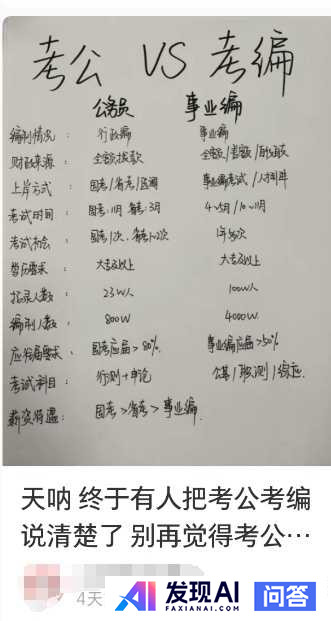 考公 VS 考编
公务员 事业编
编制情况: 行政编 事业编
财政来源: 全额拨款 全额/差额/自收自支
上岸方式: 国考/省考/选调 事业编考试/人才引进
考试时间: 国考:11月 省考:3月 4~5月/10~11月
考试机会: 国考1次、省考1~2次 1年多次
学历要求: 大专及以上 大专及以上
招录人数: 23W人 100W人
编制人数: 800W 4000W
应届需求: 国考应届>80% 事业编应届>50%
考试科目: 行测+申论 公基/职测/综应
薪资待遇: 国考>省考>事业编
天呐 终于有人把考公考编
说清楚了 别再觉得考公…
4天
发现AI 问答
FAXIANAI.COM